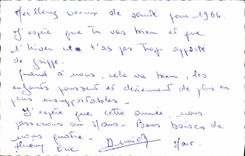 Meilleurs vœux de santé pour 1966.
J'espère que tu vas bien et que
l'hiver ne t'as pas trop apporté
de grippe.
Quand à nous, cela va bien, les
enfants poussent et deviennent de plus en
plus insupportables.
J'espère que cette année, nous
passerons au Mans. Bons baisers de
nous quatre.
Thierry Eric Marc